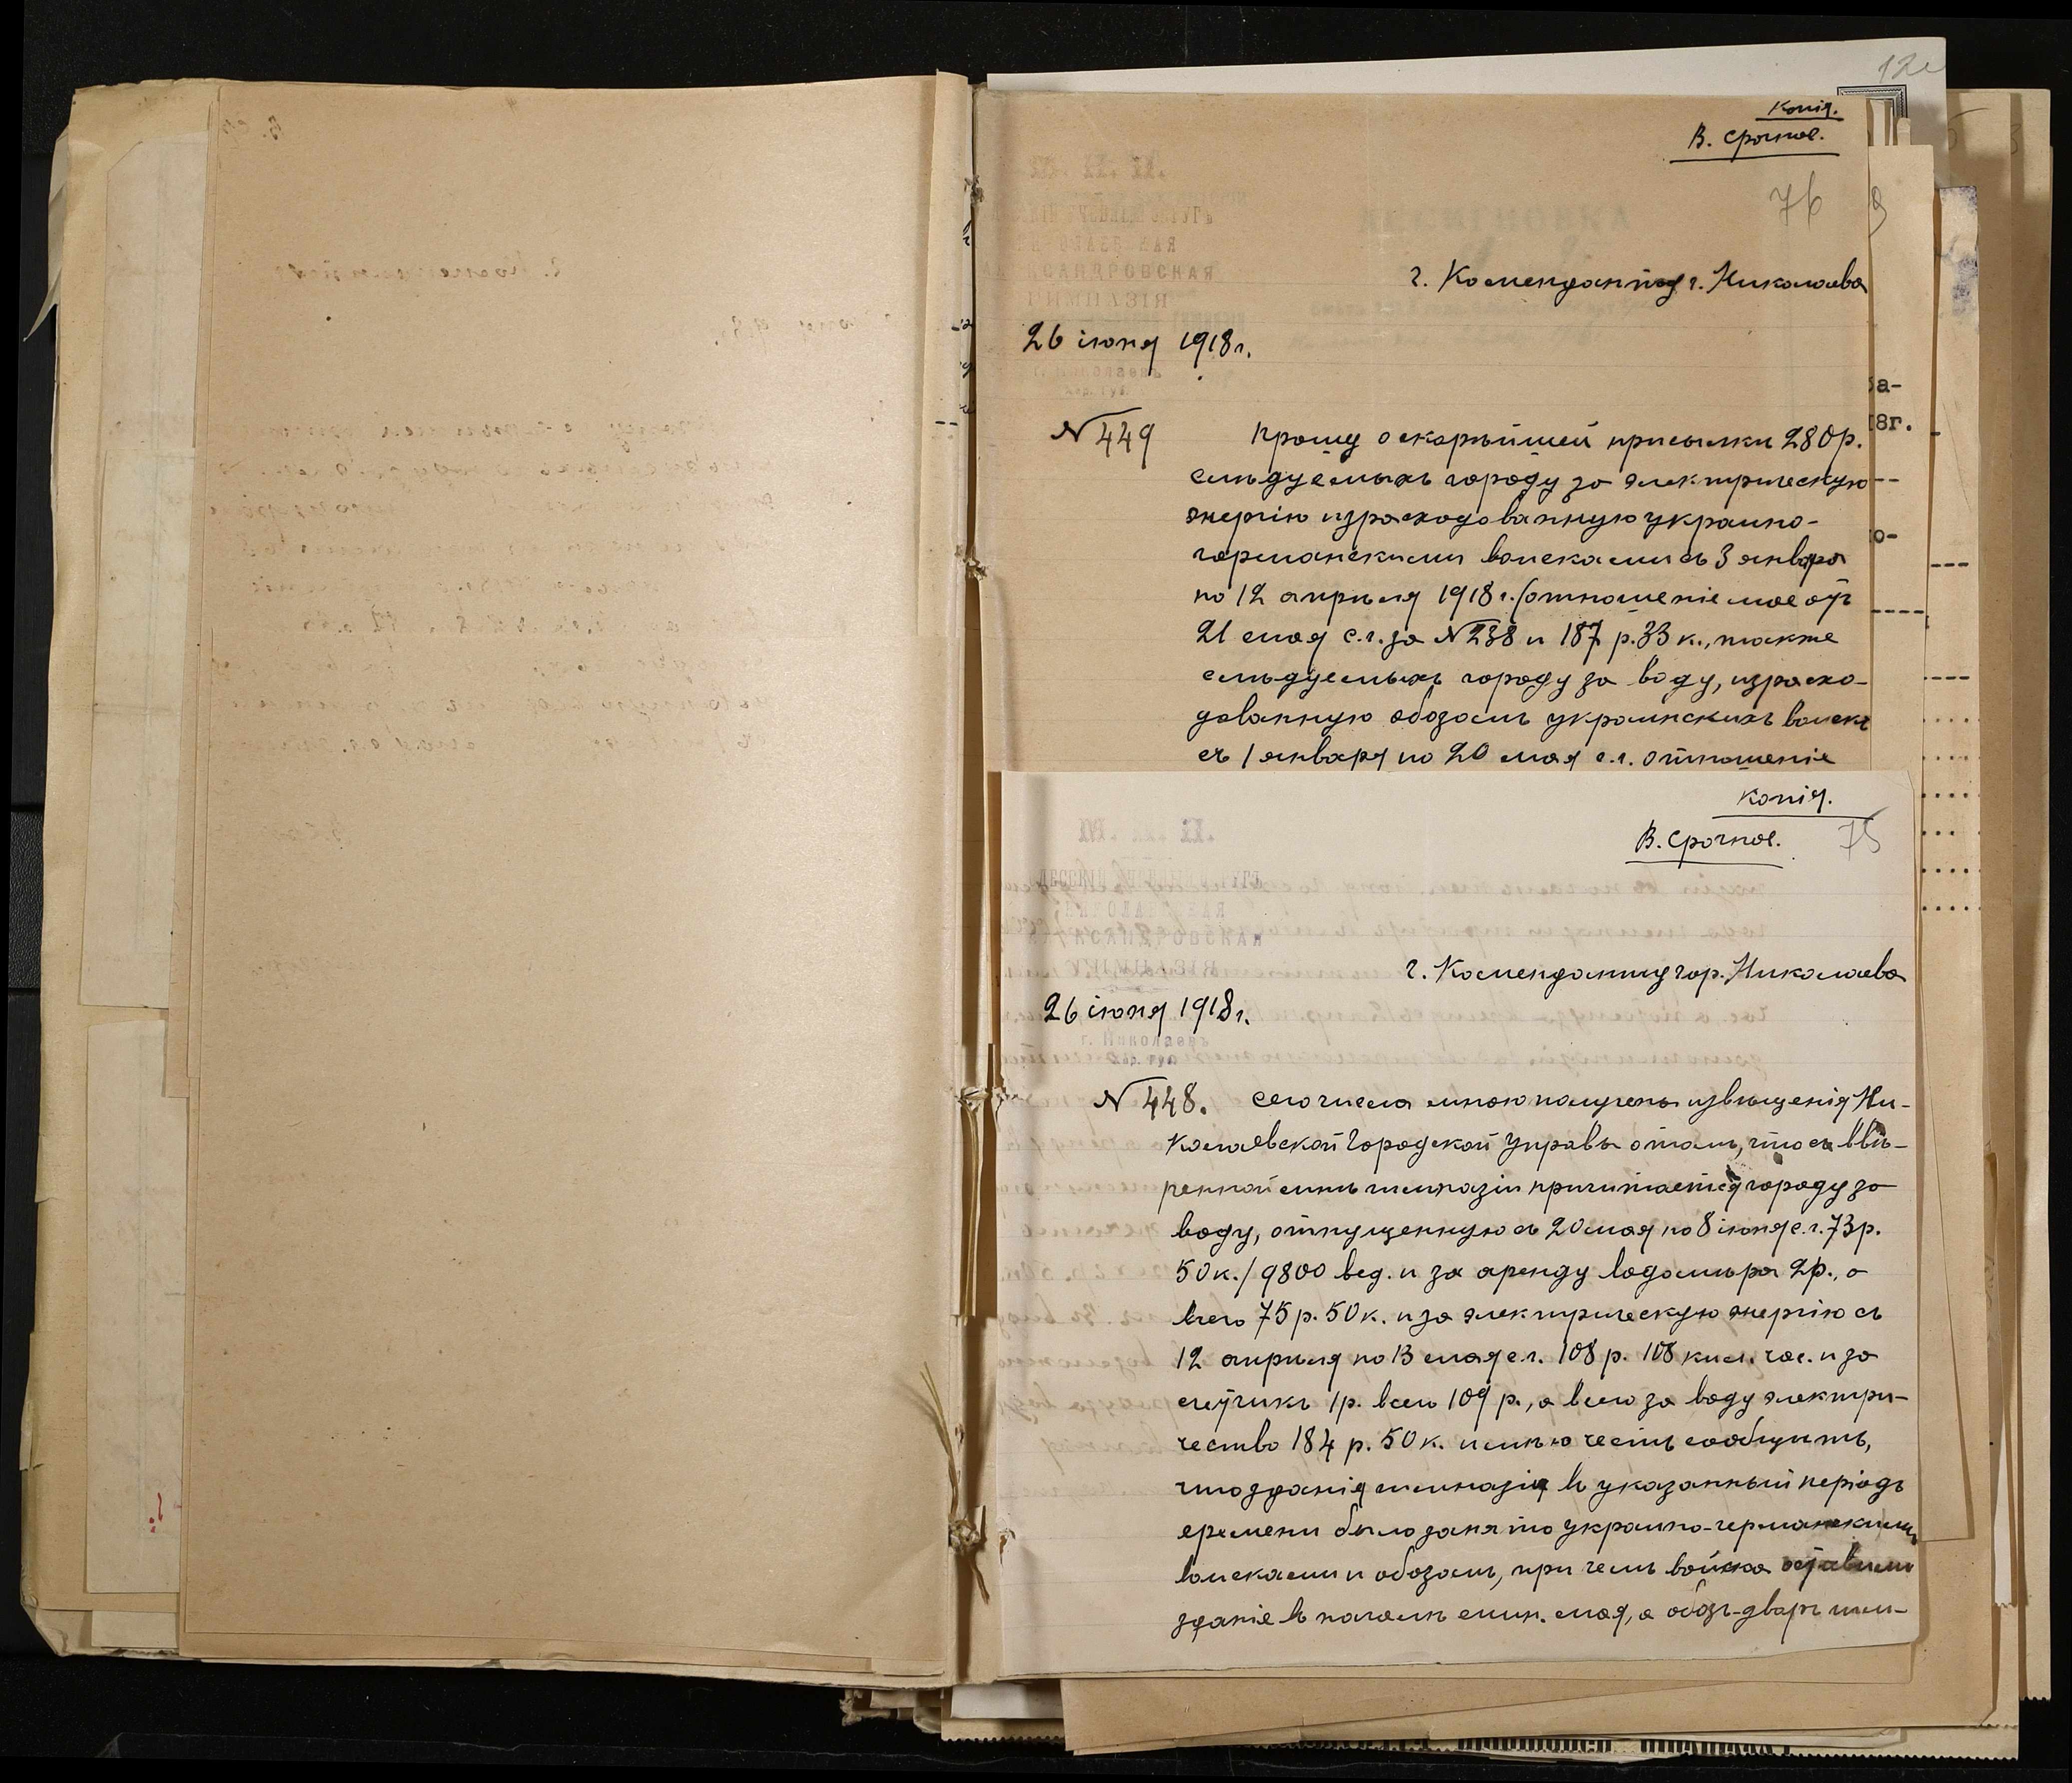 12
Копія.
В. Срочное.
76
г. Коменданту г. Николаева
26 іюня 1918 г.
№ 449
Прошу о скорѣйшей присылки 280 р.
слѣдуемыхъ городу за электрическую
энергію израсходованную украино-
германскими войсками съ 3 января
по 12 апрѣля 1918 г. (отношеніе мое отъ
21 мая с.г. за № 238 и 187 р. 33 к., также
слѣдуемыхъ городу за воду, израсхо-
дованную обозомъ украинскихъ войскъ
съ 1 января по 20 мая с.г. отношеніе
а-
8г.
о-
Копія.
В. Срочное.
75
АЛЕКСАНДРОВСКАЯ
ГИМНАЗІЯ
г. Николаевъ
г. Коменданту гор. Николаева
26 іюня 1918 г.
№ 448. Сего числа мною получены извѣщенія Ни-
колаевской Городской Управы о томъ, что съ ввѣ-
ренной мнѣ гимназіи причитается городу за
воду, отпущенную съ 20 мая по 8 іюня с.г. 73 р.
50 к. / 9800 вед. и за аренду водомѣра 2 р., а
всего 75 р. 50 к. и за электрическую энергію съ
12 апрѣля по 13 мая с.г. 108 р. 108 кил. час. и за
счетчикъ 1 р. всего 109 р., а всего за воду электри-
чество 184 р. 50 к. имѣю честь сообщить,
что зданія гимназія въ указанный періодъ
времени было занято украино-германскими
войсками и обозомъ, при чемъ войска оставили
зданіе въ началѣ мая, а обозъ-дворъ гим-